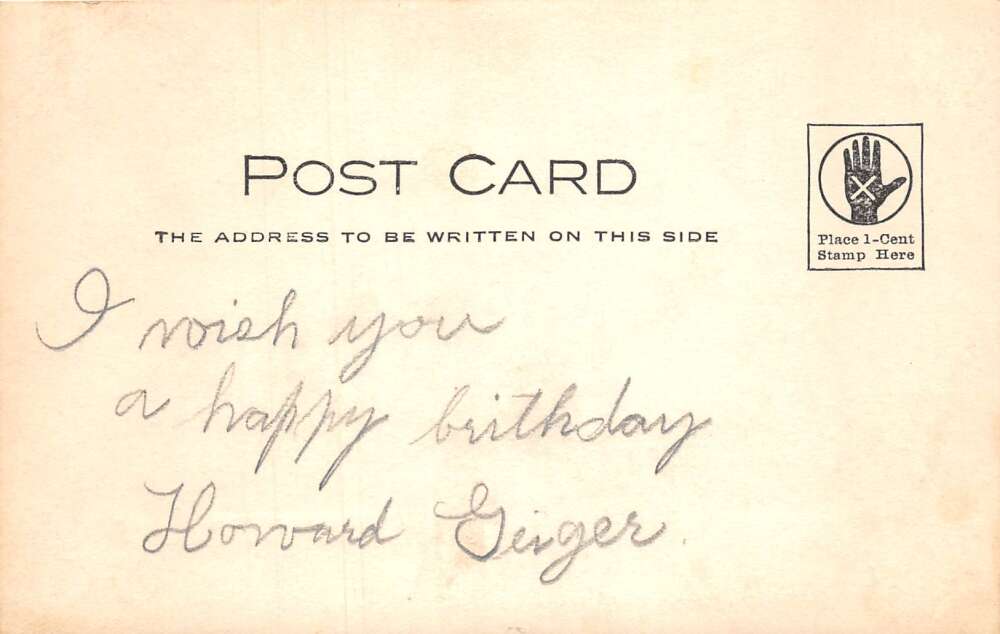 POST CARD
THE ADDRESS TO BE WRITTEN ON THIS SIDE
Place 1-Cent
Stamp Here
I wish you
a happy birthday
Howard Geiger.